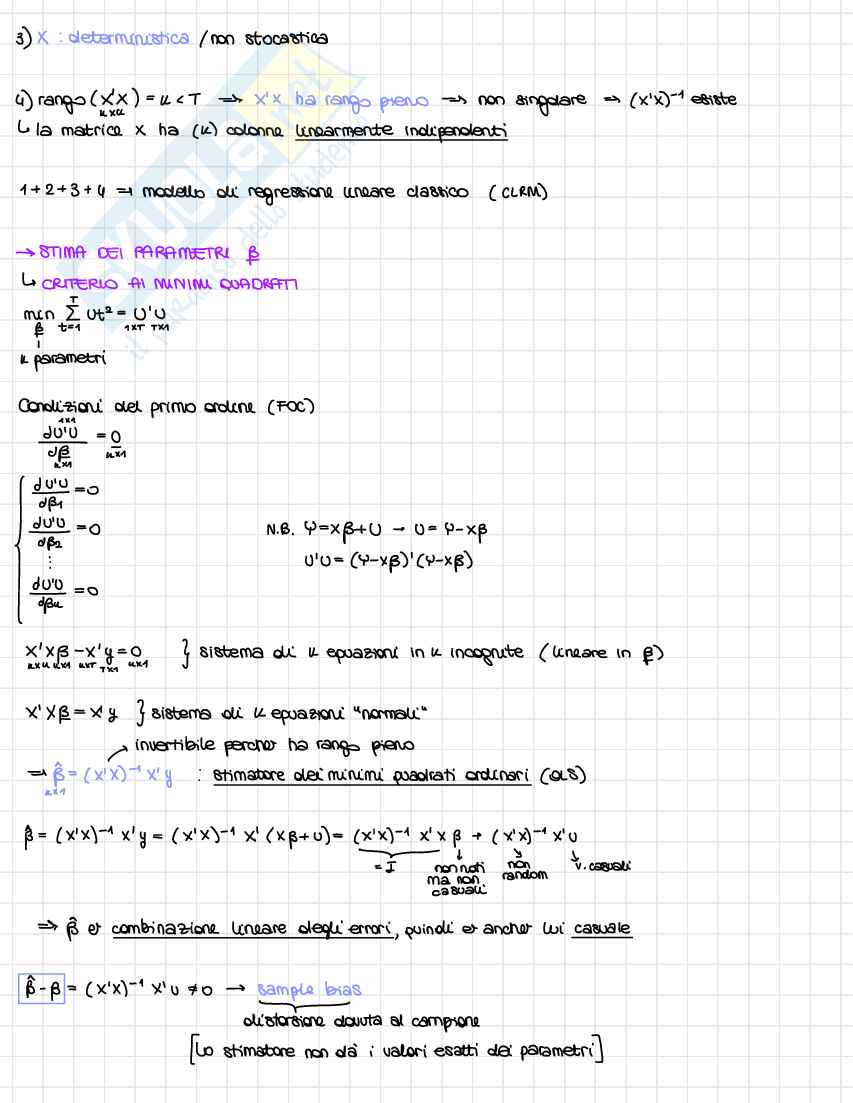 3) X : deterministica / non stocastica
4) rango (X'X) = k < T → X'X ha rango pieno → non singolare ⇒ (X'X)⁻¹ esiste
kxk
↳ la matrice X ha (k) colonne linearmente indipendenti
1+2+3+4 ⇒ modello di regressione lineare classico (CLRM)
→ STIMA DEI PARAMETRI β
↳ CRITERIO AI MINIMI QUADRATI
min Σ Ut² = U'U
β t=1 T 1xT Tx1
k parametri
Condizioni del primo ordine (FOC)
1x1
dU'U / dβ = 0
kx1 kx1
dU'U / dβ1 = 0
dU'U / dβ2 = 0
N.B. Y=Xβ+U → U= Y-Xβ
⋮
U'U = (Y-Xβ)'(Y-Xβ)
dU'U / dβk = 0
X'Xβ - X'y = 0 } sistema di k equazioni in k incognite (lineare in β)
kxk kx1 kxT Tx1 kx1
X'Xβ = X'y } sistema di k equazioni "normali"
invertibile perche' ha rango pieno
⇒ β̂ = (X'X)⁻¹ X'y : stimatore dei minimi quadrati ordinari (OLS)
kx1
β̂ = (X'X)⁻¹ X'y = (X'X)⁻¹ X' (Xβ+U) = (X'X)⁻¹ X'X β + (X'X)⁻¹ X'U
= I non noti ma non casuali non random v. casuali
⇒ β̂ e' combinazione lineare degli errori, quindi e' anche lui casuale
β̂ - β = (X'X)⁻¹ X'U ≠ 0 → sample bias
distorsione dovuta al campione
[Lo stimatore non dà i valori esatti dei parametri]
SKUOLA.net
il paradiso dello studente